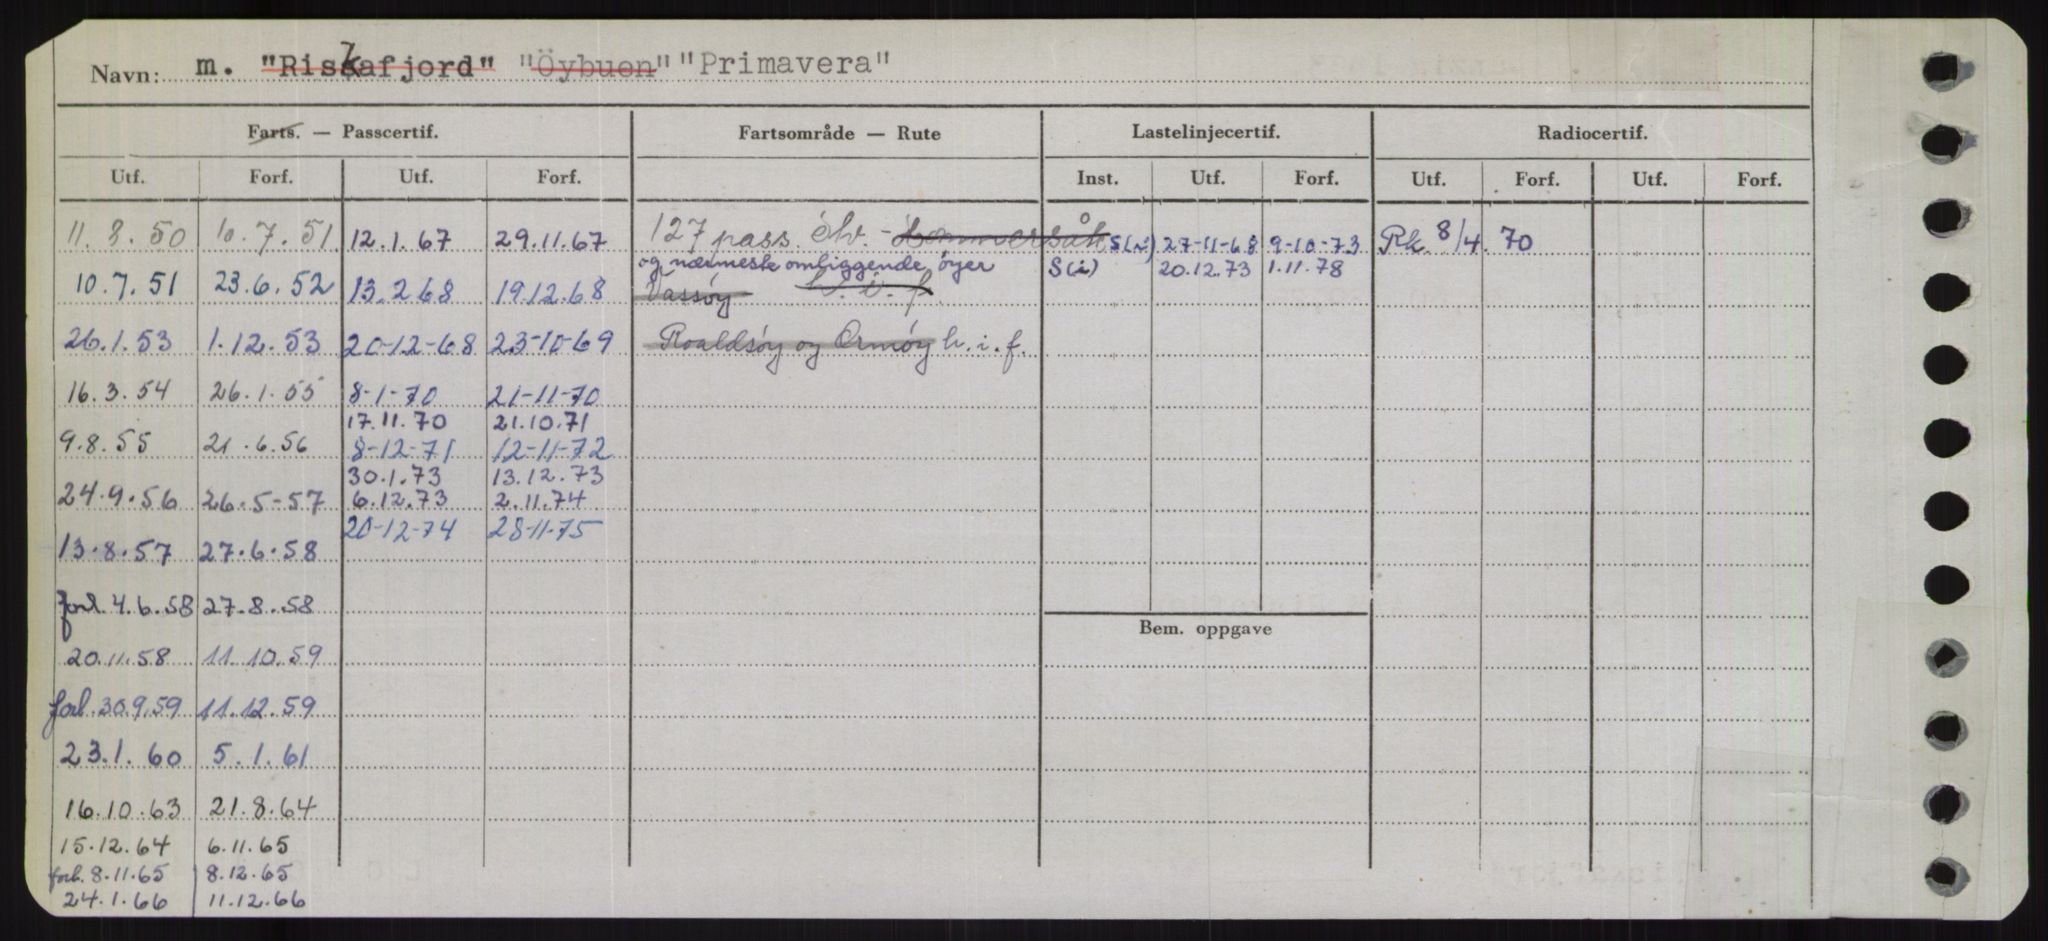 Navn: m. "Riskafjord" "Öybuen" "Primavera"
Farts. — Passcertif. Fartsområde — Rute Lastelinjecertif. Radiocertif.
Utf. Forf. Utf. Forf. Inst. Utf. Forf. Utf. Forf. Utf. Forf.
11.8.50 10.7.51 12.1.67 29.11.67 127 pass. - Hommersåk S(i) 27-11-68 9-10-73 Rk. 8/4. 70
og nærmeste omliggende öyer S(i) 20.12.73 1.11.78
10.7.51 23.6.52 13.2.68 19.12.68 Vassöy h. i. f.
26.1.53 1.12.53 20-12-68 23-10-69 Roaldsöy og Ormöy h. i. f.
16.3.54 26.1.55 8-1-70 21-11-70
17.11.70 21.10.71
9.8.55 21.6.56 8-12-71 12-11-72
30.1.73 13.12.73
24.9.56 26.5-57 6.12.73 2.11.74
20-12-74 28-11-75
13.8.57 27.6.58
forl. 4.6.58 27.8.58
Bem. oppgave
20.11.58 11.10.59
forl. 30.9.59 11.12.59
23.1.60 5.1.61
16.10.63 21.8.64
15.12.64 6.11.65
forl. 8.11.65 8.12.65
24.1.66 11.12.66